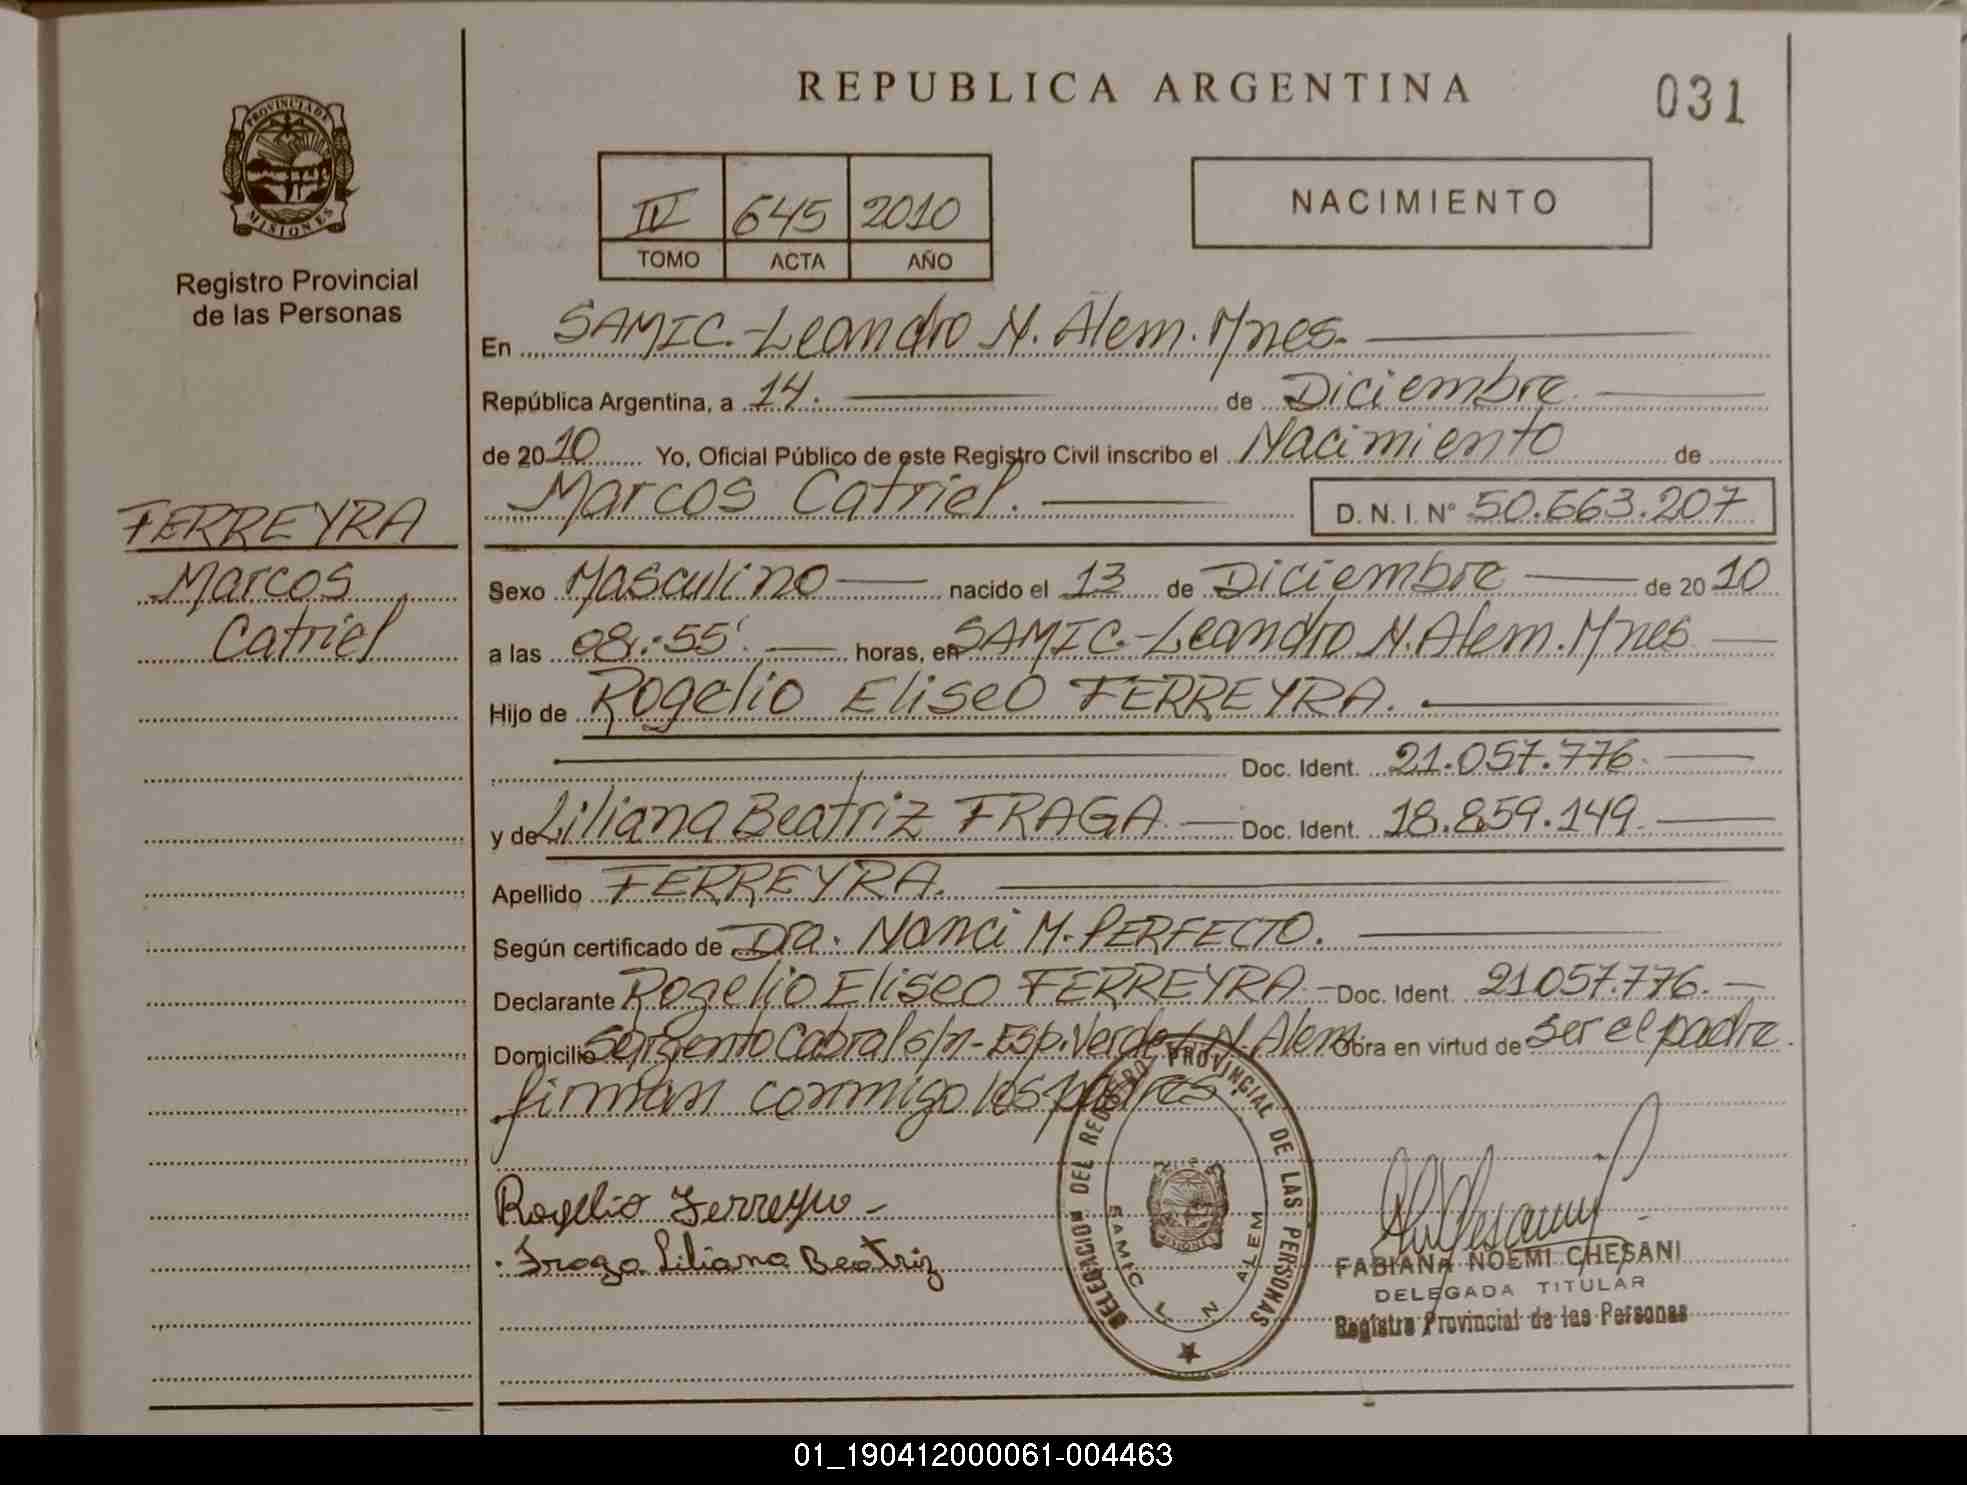 REPUBLICA ARGENTINA
031
PROVINCIA DE
MISIONES
Registro Provincial
de las Personas
IV 645 2010
TOMO ACTA AÑO
NACIMIENTO
En SAMIC.-Leandro N. Alem. Mnes.
República Argentina, a 14. de Diciembre
de 2010 Yo, Oficial Público de este Registro Civil inscribo el Nacimiento de
Marcos Catriel. D. N. I. N° 50.663.207
FERREYRA
Marcos
Catriel
Sexo Masculino nacido el 13 de Diciembre de 2010
a las 08:55' horas, en SAMIC.-Leandro N. Alem. Mnes
Hijo de Rogelio Eliseo FERREYRA.
Doc. Ident. 21.057.776.
y de Liliana Beatriz FRAGA. Doc. Ident. 18.859.149.
Apellido FERREYRA.
Según certificado de Dra. Nanci M. PERFECTO.
Declarante Rogelio Eliseo FERREYRA.- Doc. Ident. 21.057.776.
Domicilio Sargento Cabral s/n- Esp. Verde L. N. Alem. Obra en virtud de ser el padre.
firman conmigo los padres
Rogelio Ferreyra -
Fraga Liliana Beatriz
DELEGACION DEL REGISTRO PROVINCIAL DE LAS PERSONAS
SAMIC L N ALEM
MISIONES
FABIANA NOEMI CHESANI
DELEGADA TITULAR
Registro Provincial de las Personas
01_190412000061-004463